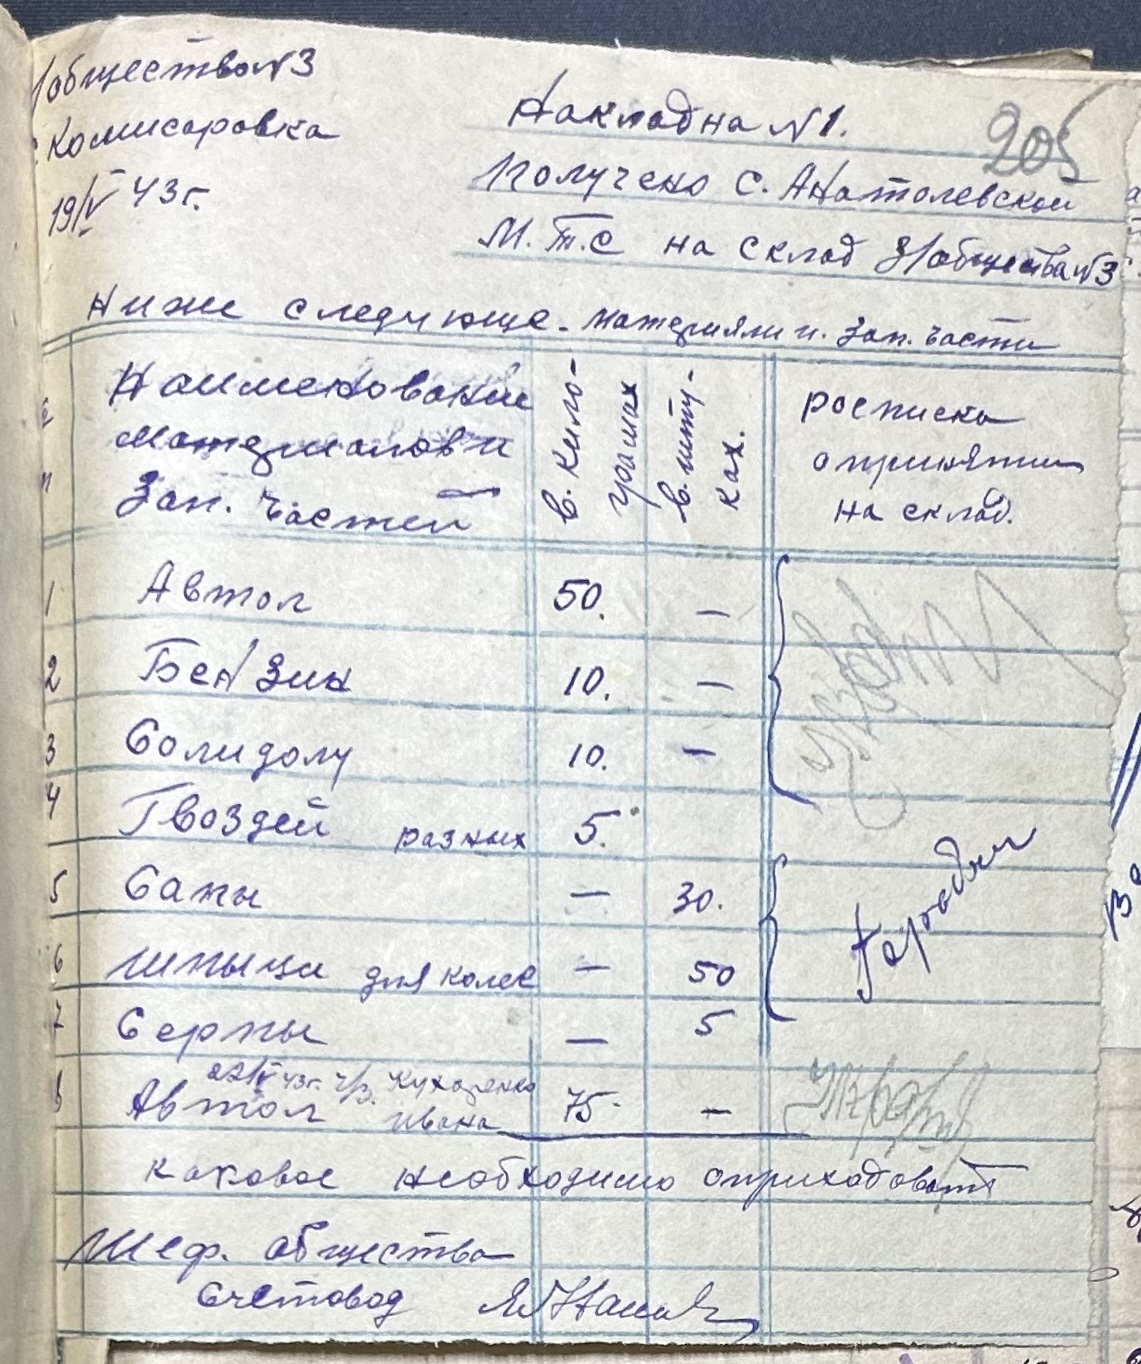 З/общество №3
с Комисаровка
19/V 43г.
205
Накладна №1.
Получено с. Анатолевской
М.Т.С на склад З/общества №3
Ниже следующе. материяли и. Зап. части
Наименование
материалов и
Зап. частей
в. кило-
грамах
в. шту-
ках.
росписка
о принятии
на склад.
1 Автол 50. —
2 Бензин 10. —
3 Солидолу 10. —
4 Гвоздей разных 5.
5 Сапы — 30.
6 шпыци для колес — 50
7 Серпы — 5
22/V 43г. ч/з. Кухаренко
8 Автол Ивана 75. —
каковое необходимо оприходовать
Шеф. общества
Счетовод